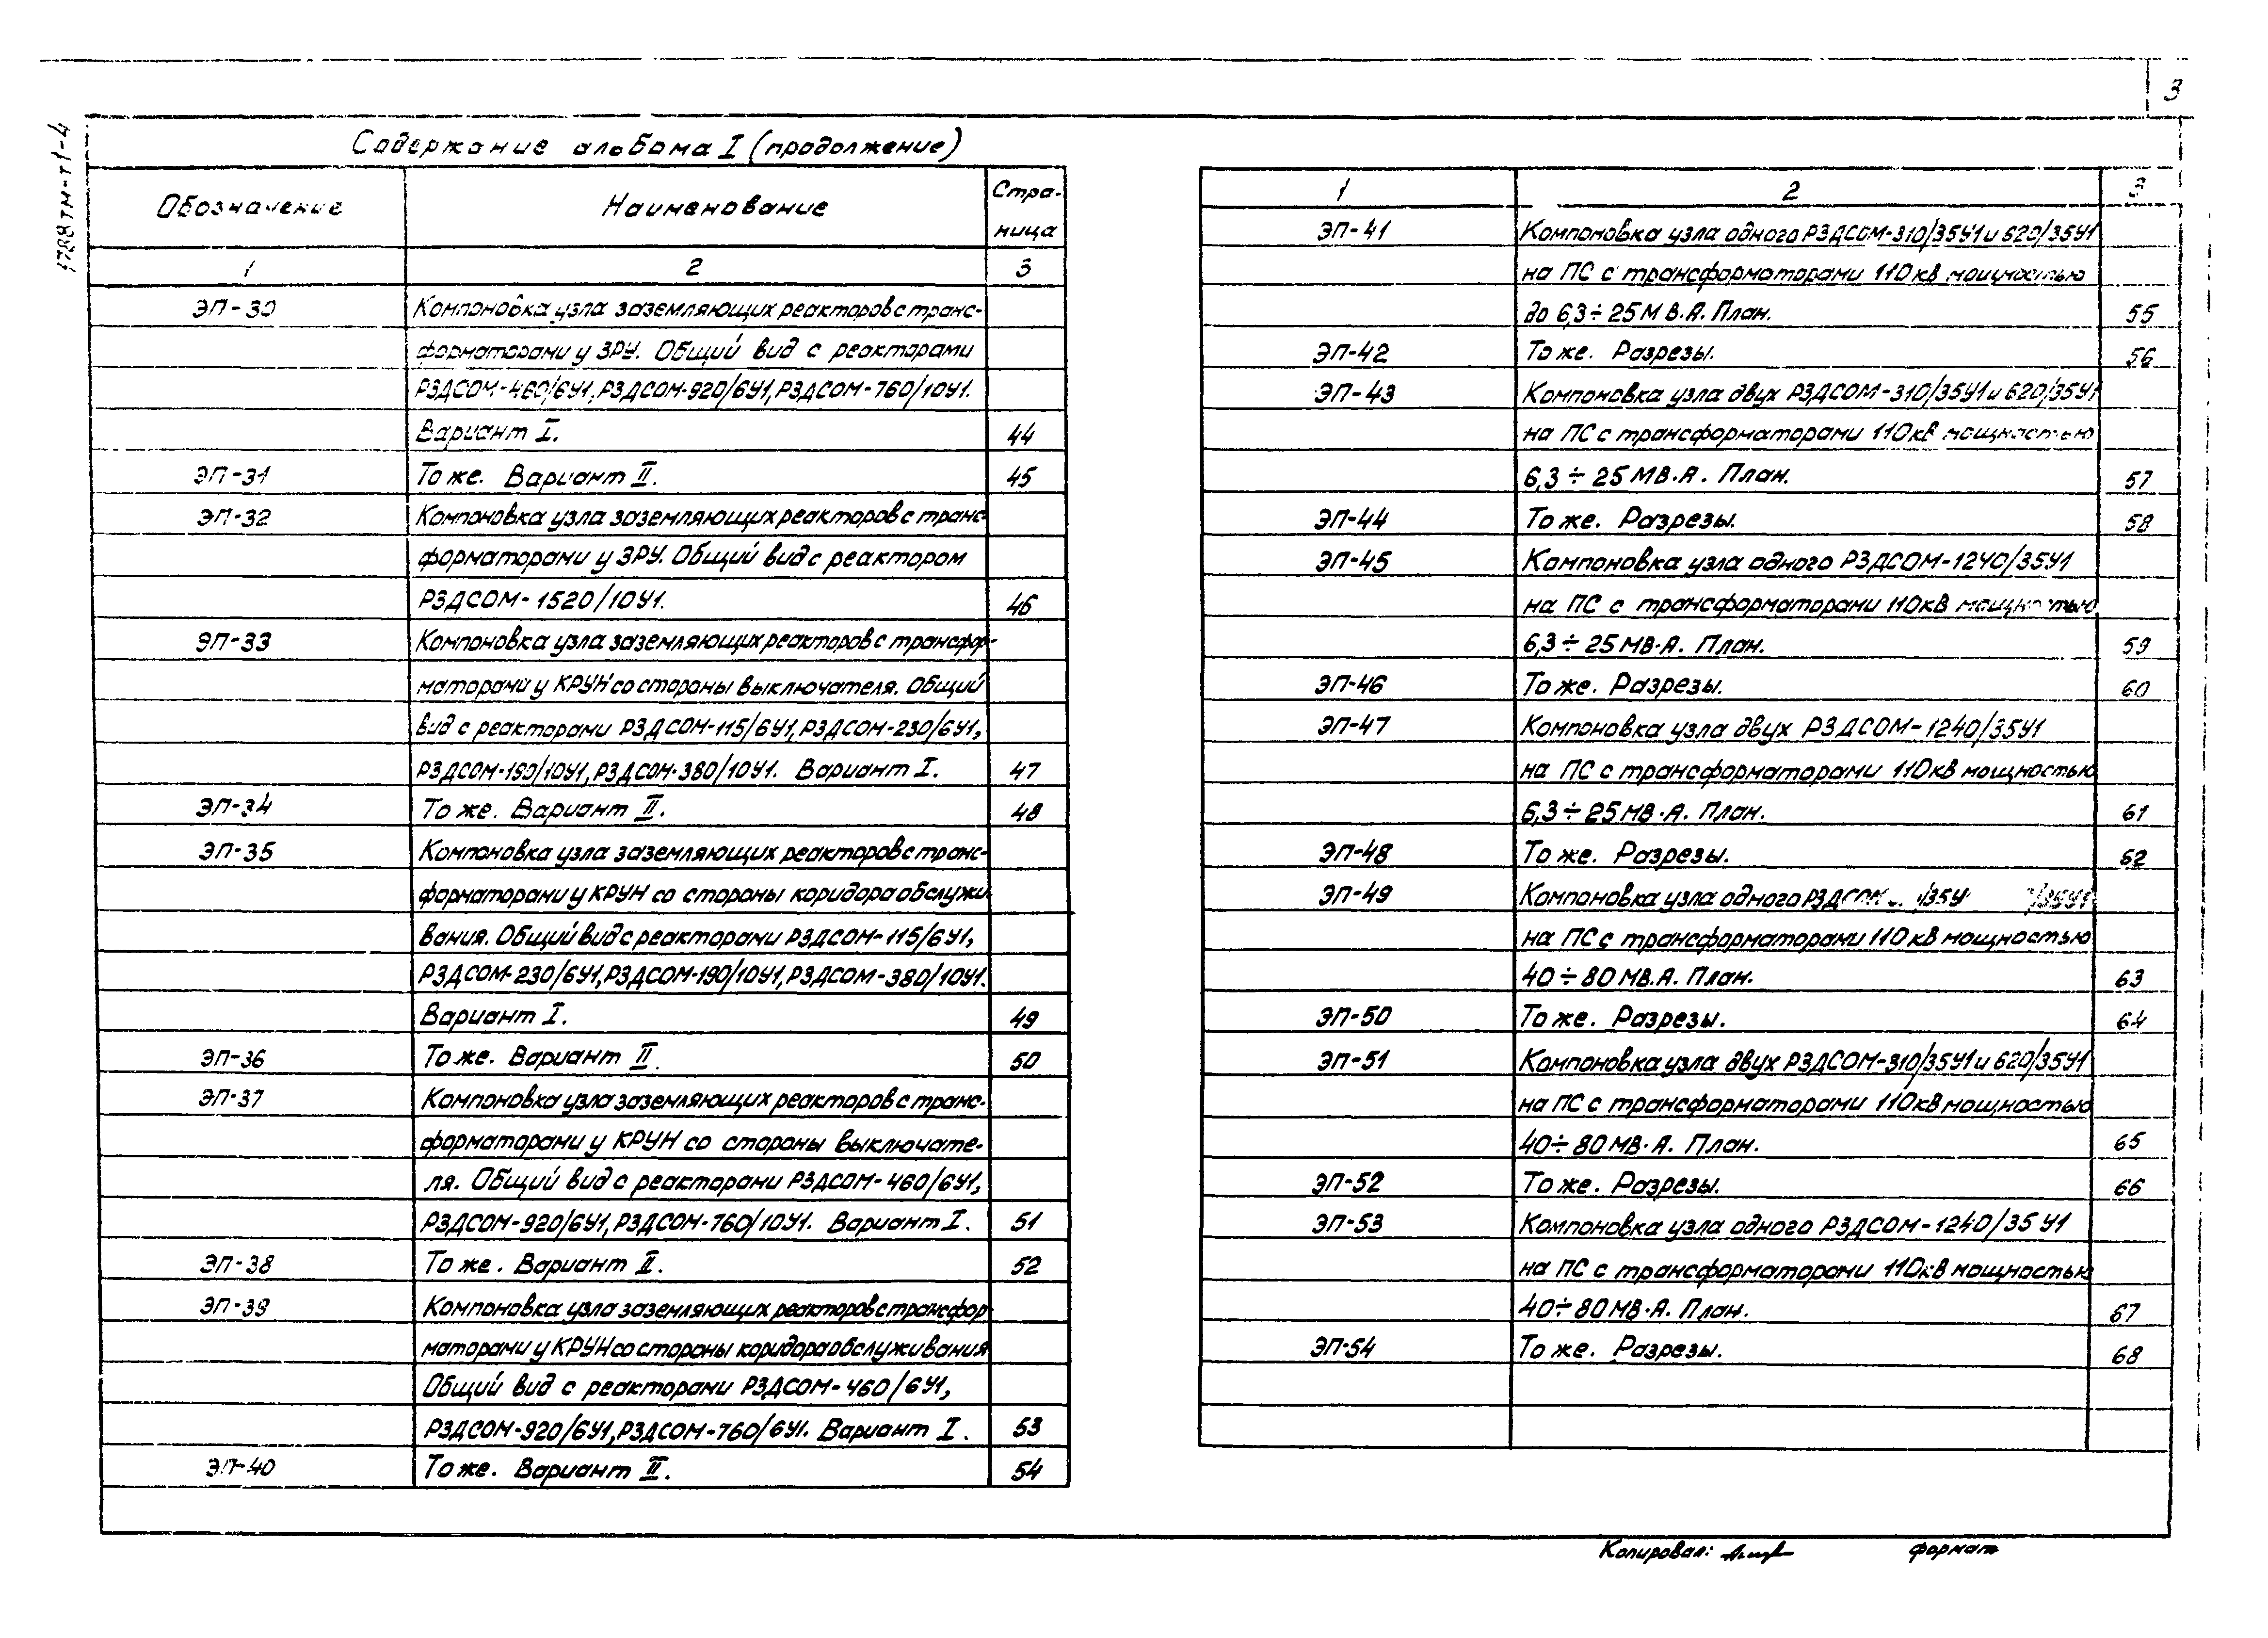 3
1788тм-т1-4
Содержание альбома I (продолжение)
Обозначение Наименование Стра-
ница
1 2 3
ЭП-30 Компоновка узла заземляющих реакторов с транс-
форматорами у ЗРУ. Общий вид с реакторами
РЗДСОМ-460/6У1, РЗДСОМ-920/6У1, РЗДСОМ-760/10У1.
Вариант I. 44
ЭП-31 То же. Вариант II. 45
ЭП-32 Компоновка узла заземляющих реакторов с транс-
форматорами у ЗРУ. Общий вид с реактором
РЗДСОМ-1520/10У1. 46
ЭП-33 Компоновка узла заземляющих реакторов с трансфор-
маторами у КРУН со стороны выключателя. Общий
вид с реакторами РЗДСОМ-115/6У1, РЗДСОМ-230/6У1,
РЗДСОМ-190/10У1, РЗДСОМ-380/10У1. Вариант I. 47
ЭП-34 То же. Вариант II. 48
ЭП-35 Компоновка узла заземляющих реакторов с транс-
форматорами у КРУН со стороны коридора обслужи-
вания. Общий вид с реакторами РЗДСОМ-115/6У1,
РЗДСОМ-230/6У1, РЗДСОМ-190/10У1, РЗДСОМ-380/10У1.
Вариант I. 49
ЭП-36 То же. Вариант II. 50
ЭП-37 Компоновка узла заземляющих реакторов с транс-
форматорами у КРУН со стороны выключате-
ля. Общий вид с реакторами РЗДСОМ-460/6У1,
РЗДСОМ-920/6У1, РЗДСОМ-760/10У1. Вариант I. 51
ЭП-38 То же. Вариант II. 52
ЭП-39 Компоновка узла заземляющих реакторов с трансфор-
маторами у КРУН со стороны коридора обслуживания
Общий вид с реакторами РЗДСОМ-460/6У1,
РЗДСОМ-920/6У1, РЗДСОМ-760/6У1. Вариант I. 53
ЭП-40 То же. Вариант II. 54
1 2 3
ЭП-41 Компоновка узла одного РЗДСОМ-310/35У1 и 620/35У1
на ПС с трансформаторами 110кВ мощностью
до 6,3÷25 МВ.А. План. 55
ЭП-42 То же. Разрезы. 56
ЭП-43 Компоновка узла двух РЗДСОМ-310/35У1 и 620/35У1
на ПС с трансформаторами 110кВ мощностью
6,3÷25 МВ.А. План. 57
ЭП-44 То же. Разрезы. 58
ЭП-45 Компоновка узла одного РЗДСОМ-1240/35У1
на ПС с трансформаторами 110кВ мощностью
6,3÷25 МВ.А. План. 59
ЭП-46 То же. Разрезы. 60
ЭП-47 Компоновка узла двух РЗДСОМ-1240/35У1
на ПС с трансформаторами 110кВ мощностью
6,3÷25 МВ.А. План. 61
ЭП-48 То же. Разрезы. 62
ЭП-49 Компоновка узла одного
на ПС с трансформаторами 110кВ мощностью
40÷80 МВ.А. План. 63
ЭП-50 То же. Разрезы. 64
ЭП-51 Компоновка узла двух РЗДСОМ-310/35У1 и 620/35У1
на ПС с трансформаторами 110кВ мощностью
40÷80 МВ.А. План. 65
ЭП-52 То же. Разрезы. 66
ЭП-53 Компоновка узла одного РЗДСОМ-1240/35У1
на ПС с трансформаторами 110кВ мощностью
40÷80 МВ.А. План. 67
ЭП-54 То же. Разрезы. 68
Копировал: формат